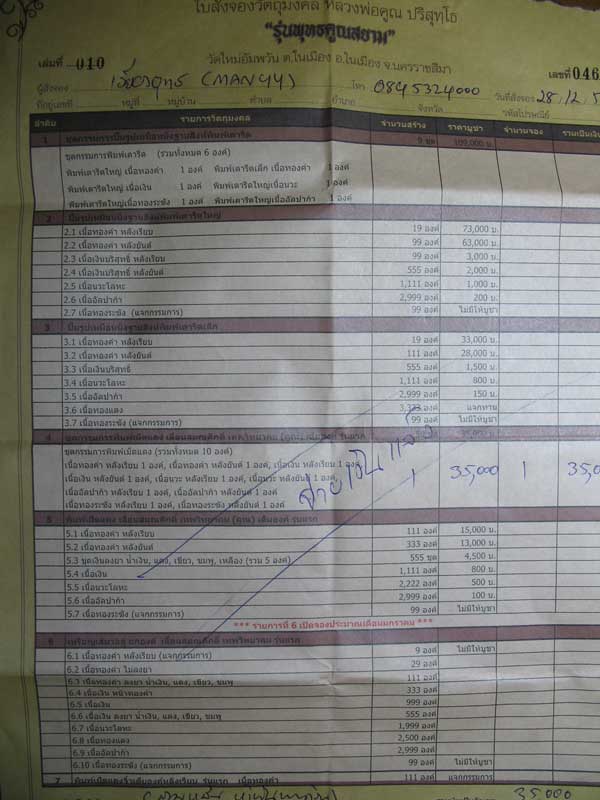 ใบสั่งจองวัตถุมงคล หลวงพ่อคูณ ปริสุทฺโธ
"รุ่นพุทธคูณสยาม"
วัดใหม่อัมพวัน ต.ในเมือง อ.ในเมือง จ.นครราชสีมา
เล่มที่ 010 เลขที่ 046
ผู้สั่งจอง (MANYY) โทร 0845324000 วันที่สั่งจอง 28.12.5
ที่อยู่เลขที่ หมู่ที่ หมู่บ้าน ตำบล อำเภอ จังหวัด รหัสไปรษณีย์
ลำดับ รายการวัตถุมงคล จำนวนสร้าง ราคาบูชา จำนวนจอง รวมเป็นเงิน
1 ชุดกรรมการปั๊มรูปเหมือนนั่งฐานสิงห์พิมพ์เตารีด 9 ชุด 109,000 บ.
ชุดกรรมการพิมพ์เตารีด (รวมทั้งหมด 6 องค์)
พิมพ์เตารีดใหญ่ เนื้อทองคำ 1 องค์ พิมพ์เตารีดเล็ก เนื้อทองคำ 1 องค์
พิมพ์เตารีดใหญ่ เนื้อเงิน 1 องค์ พิมพ์เตารีดใหญ่เนื้อนวะ 1 องค์
พิมพ์เตารีดใหญ่เนื้อทองระฆัง 1 องค์ พิมพ์เตารีดใหญ่เนื้ออัลปาก้า 1 องค์
2 ปั๊มรูปเหมือนนั่งฐานสิงห์พิมพ์เตารีดใหญ่
2.1 เนื้อทองคำ หลังเรียบ 19 องค์ 73,000 บ.
2.2 เนื้อทองคำ หลังยันต์ 99 องค์ 63,000 บ.
2.3 เนื้อเงินบริสุทธิ์ หลังเรียบ 99 องค์ 3,000 บ.
2.4 เนื้อเงินบริสุทธิ์ หลังยันต์ 555 องค์ 2,000 บ.
2.5 เนื้อนวะโลหะ 1,111 องค์ 1,000 บ.
2.6 เนื้ออัลปาก้า 2,999 องค์ 200 บ.
2.7 เนื้อทองระฆัง (แจกกรรมการ) 99 องค์ ไม่มีให้บูชา
3 ปั๊มรูปเหมือนนั่งฐานสิงห์พิมพ์เตารีดเล็ก
3.1 เนื้อทองคำ หลังเรียบ 19 องค์ 33,000 บ.
3.2 เนื้อทองคำ หลังยันต์ 111 องค์ 28,000 บ.
3.3 เนื้อเงินบริสุทธิ์ 555 องค์ 1,500 บ.
3.4 เนื้อนวะโลหะ 1,111 องค์ 800 บ.
3.5 เนื้ออัลปาก้า 2,999 องค์ 150 บ.
3.6 เนื้อทองแดง 3,333 องค์ แจกทาน
3.7 เนื้อทองระฆัง (แจกกรรมการ) 99 องค์ ไม่มีให้บูชา
4 ชุดกรรมการพิมพ์เม็ดแตง เลื่อนสมณศักดิ์ เทพวิทยาคม รุ่นแรก 35,000 บ.
ชุดกรรมการพิมพ์เม็ดแตง (รวมทั้งหมด 10 องค์)
เนื้อทองคำ หลังเรียบ 1 องค์, เนื้อทองคำ หลังยันต์ 1 องค์, เนื้อเงิน หลังเรียบ 1 องค์
เนื้อเงิน หลังยันต์ 1 องค์, เนื้อนวะ หลังเรียบ 1 องค์, เนื้อนวะ หลังยันต์ 1 องค์ 1 35,000 1 35,0
เนื้ออัลปาก้า หลังเรียบ 1 องค์, เนื้ออัลปาก้า หลังยันต์ 1 องค์
เนื้อทองระฆัง หลังเรียบ 1 องค์, เนื้อทองระฆัง หลังยันต์ 1 องค์
จ่ายเงินแล้ว
5 พิมพ์เม็ดแตง เลื่อนสมณศักดิ์ เทพวิทยาคม (คูณ) เต็มองค์ รุ่นแรก
5.1 เนื้อทองคำ หลังเรียบ 111 องค์ 15,000 บ.
5.2 เนื้อทองคำ หลังยันต์ 333 องค์ 13,000 บ.
5.3 ชุดเงินลงยา น้ำเงิน, แดง, เขียว, ชมพู, เหลือง (รวม 5 องค์) 555 ชุด 4,500 บ.
5.4 เนื้อเงิน 1,111 องค์ 800 บ.
5.5 เนื้อนวะโลหะ 2,222 องค์ 500 บ.
5.6 เนื้ออัลปาก้า 2,999 องค์ 100 บ.
5.7 เนื้อทองระฆัง (แจกกรรมการ) 99 องค์ ไม่มีให้บูชา
*** รายการที่ 6 เปิดจองประมาณเดือนมกราคม ***
6 เหรียญเสมา เลื่อนสมณศักดิ์ เทพวิทยาคม รุ่นแรก
6.1 เนื้อทองคำ หลังเรียบ (แจกกรรมการ) 9 องค์ ไม่มีให้บูชา
6.2 เนื้อทองคำ ไม่ลงยา 29 องค์
6.3 เนื้อทองคำ ลงยา น้ำเงิน, แดง, เขียว, ชมพู 111 องค์
6.4 เนื้อเงิน หน้าทองคำ 333 องค์
6.5 เนื้อเงิน 999 องค์
6.6 เนื้อเงิน ลงยา น้ำเงิน, แดง, เขียว, ชมพู 555 องค์
6.7 เนื้อนวะโลหะ 1,999 องค์
6.8 เนื้อทองแดง 2,500 องค์
6.9 เนื้ออัลปาก้า 2,999 องค์
6.10 เนื้อทองระฆัง (แจกกรรมการ) 99 องค์ ไม่มีให้บูชา
7 พิมพ์เม็ดแตงรุ่นแรก เนื้อทองคำ 111 องค์ แจกกรรมการ
35000